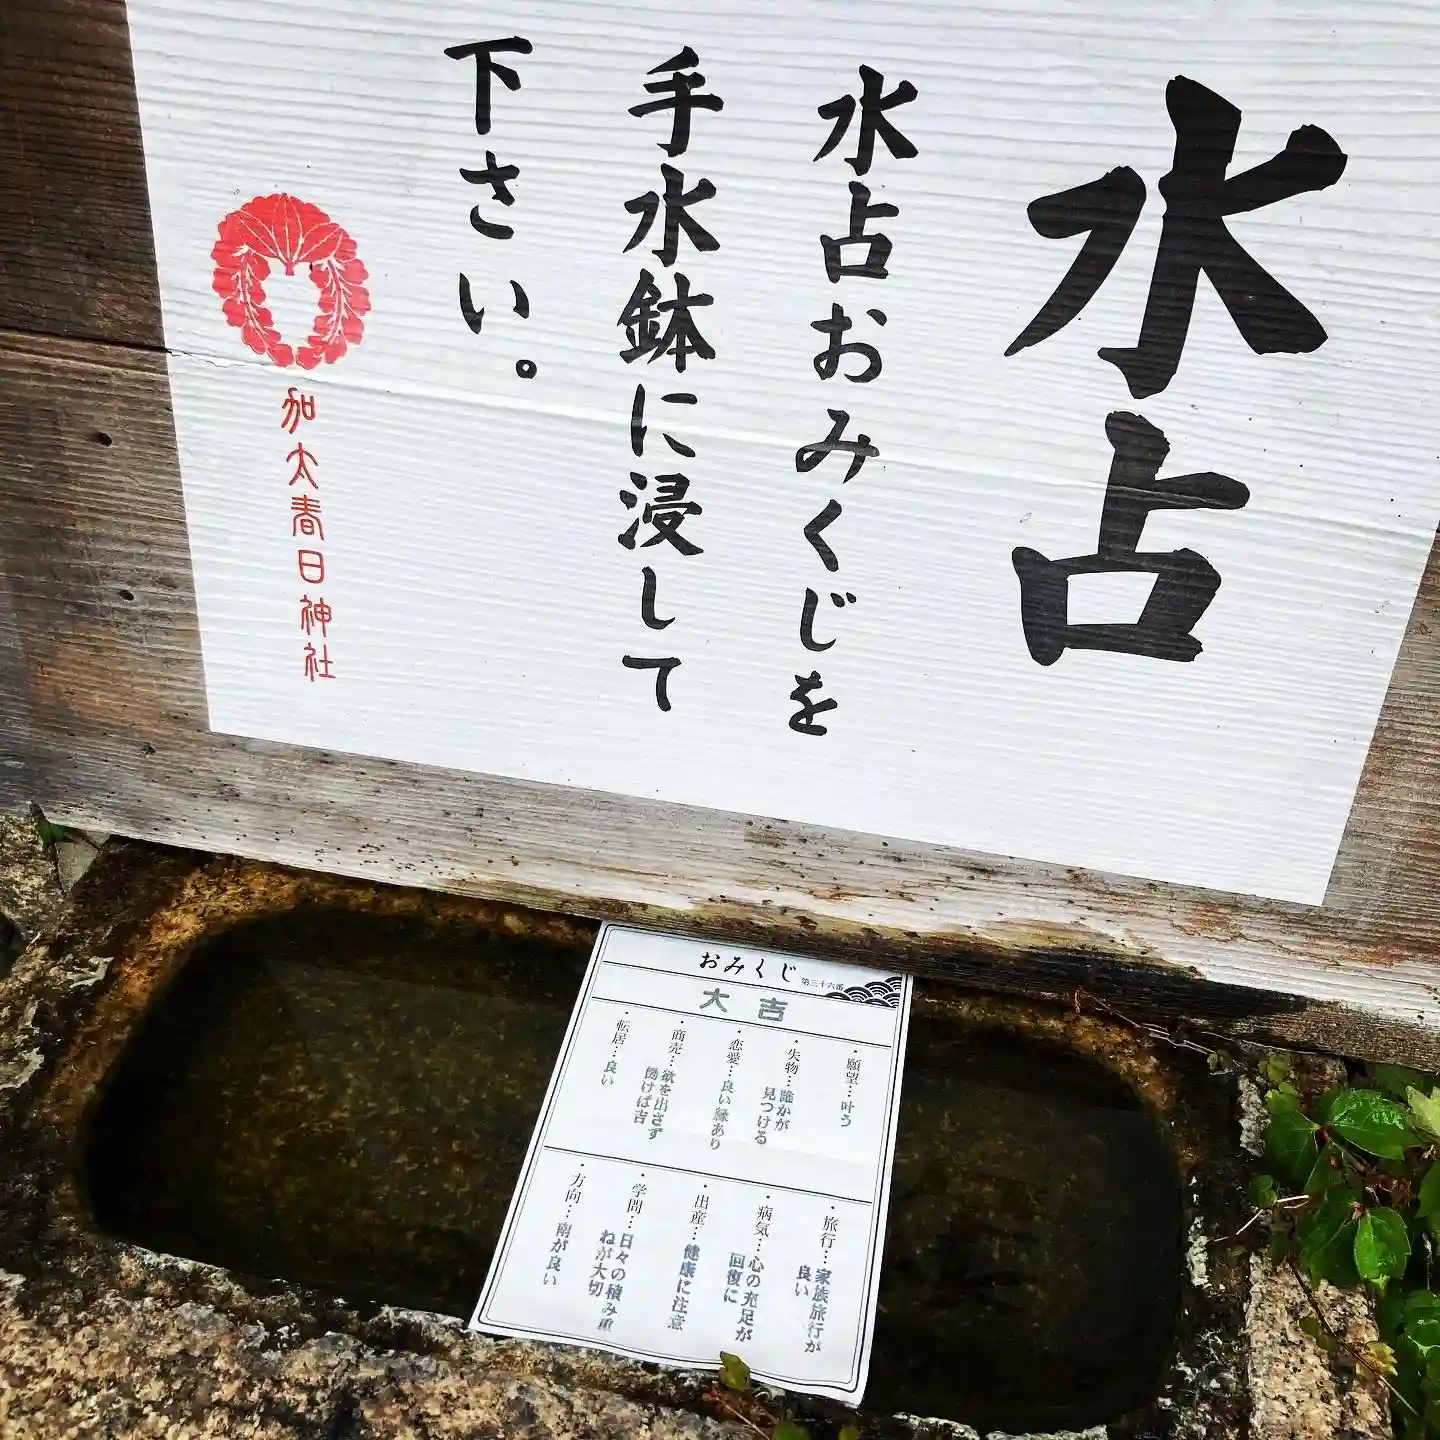 水占
水占おみくじを
手水鉢に浸して
下さい。
加太春日神社
おみくじ 第三十六番
大吉
・願望…叶う
・失物…誰かが
見つける
・恋愛…良い縁あり
・商売…欲を出さず
働けば吉
・転居…良い
・旅行…家族旅行が
良い
・病気…心の充足が
回復に
・出産…健康に注意
・学問…日々の積み重
ねが大切
・方向…南が良い